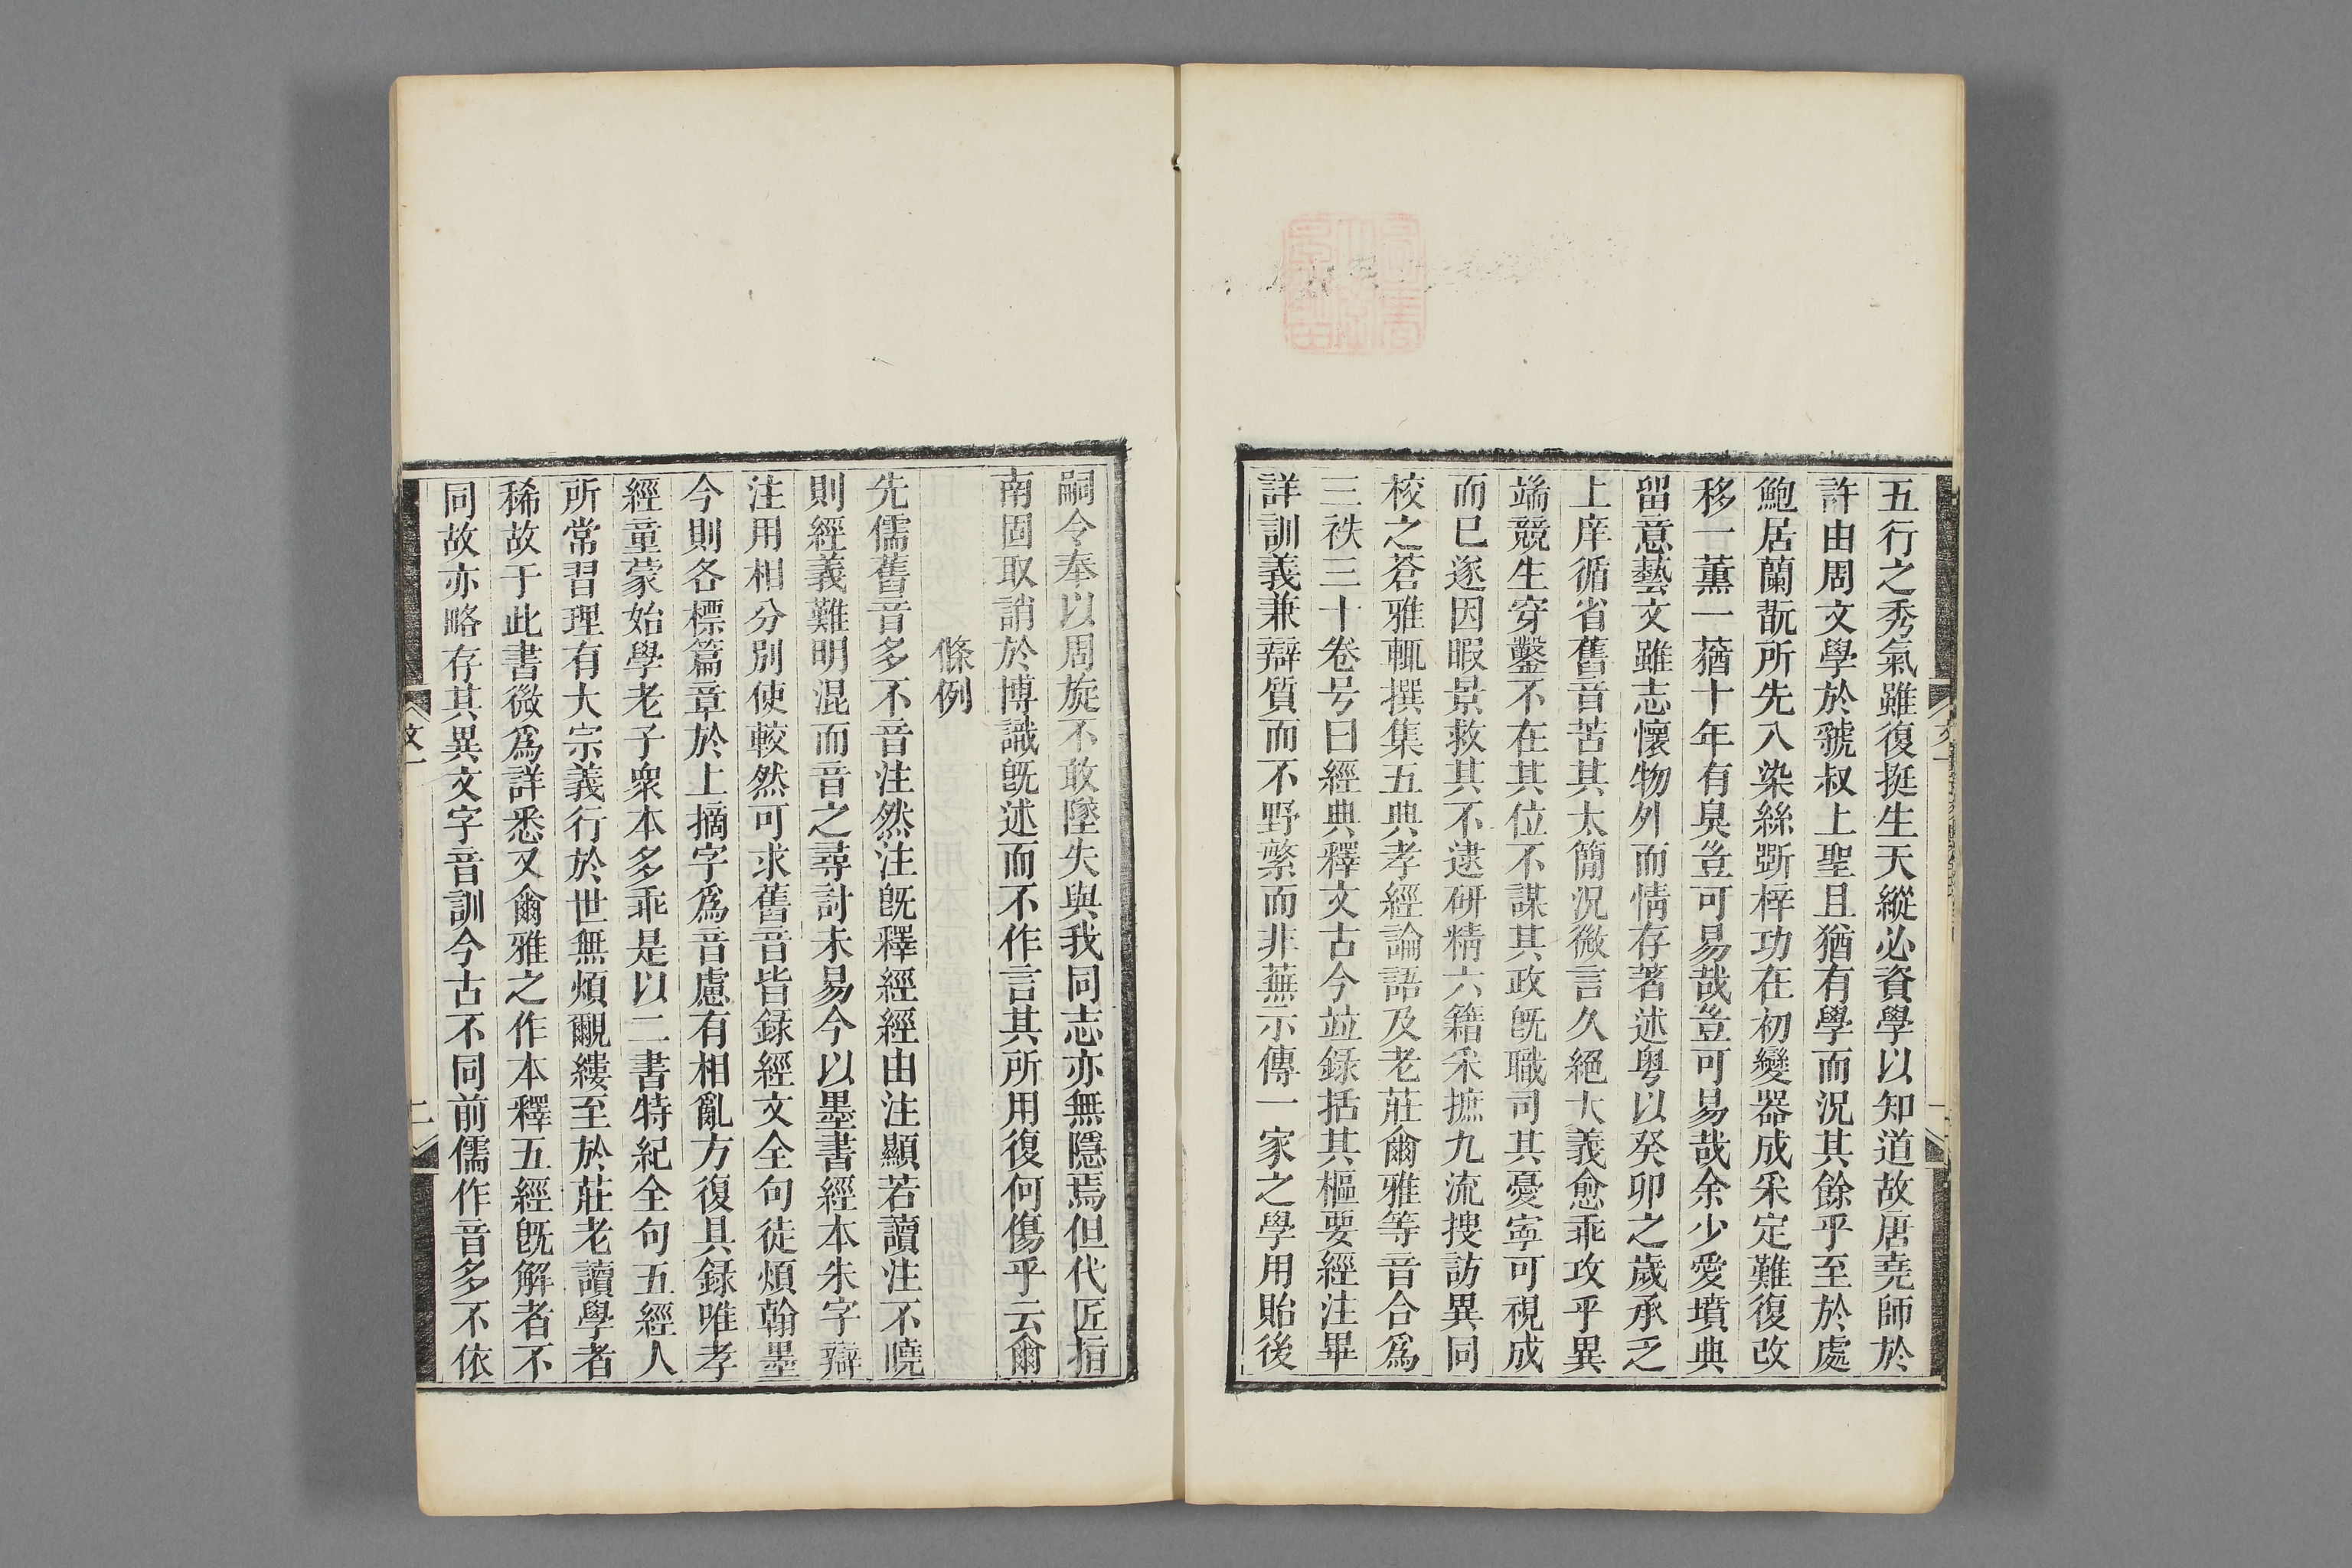 五行之秀氣雖復挺生天縱必資學以知道故唐堯師於
許由周文學於虢叔上聖且猶有學而況其餘乎至於處
鮑居蘭翫所先入染絲斲梓功在初變器成采定難復改
移一薰一蕕十年有臭豈可易哉豈可易哉余少愛墳典
留意藝文雖志懷物外而情存著述粤以癸卯之歲承乏
上庠循省舊音苦其太簡況微言久絕大義愈乖攻乎異
端競生穿鑿不在其位不謀其政旣職司其憂寧可視成
而已遂因暇景救其不逮研精六籍采摭九流搜訪異同
校之蒼雅輒撰集五典孝經論語及老莊爾雅等音合爲
三袟三十卷号曰經典釋文古今竝錄括其樞要經注畢
詳訓義兼辯質而不野繁而非蕪示傳一家之學用貽後
嗣令奉以周旋不敢墜失與我同志亦無隱焉但代匠指
南固取誚於博識旣述而不作言其所用復何傷乎云爾
條例
先儒舊音多不音注然注旣釋經經由注顯若讀注不曉
則經義難明混而音之尋討未易今以墨書經本朱字辯
注用相分別使較然可求舊音皆録經文全句徒煩翰墨
今則各標篇章於上摘字爲音慮有相亂方復具録唯孝
經童蒙始學老子衆本多乖是以二書特紀全句五經人
所常習理有大宗義行於世無煩覼縷至於莊老讀學者
稀故于此書微爲詳悉又爾雅之作本釋五經旣解者不
同故亦略存其異文字音訓今古不同前儒作音多不依
文一
二